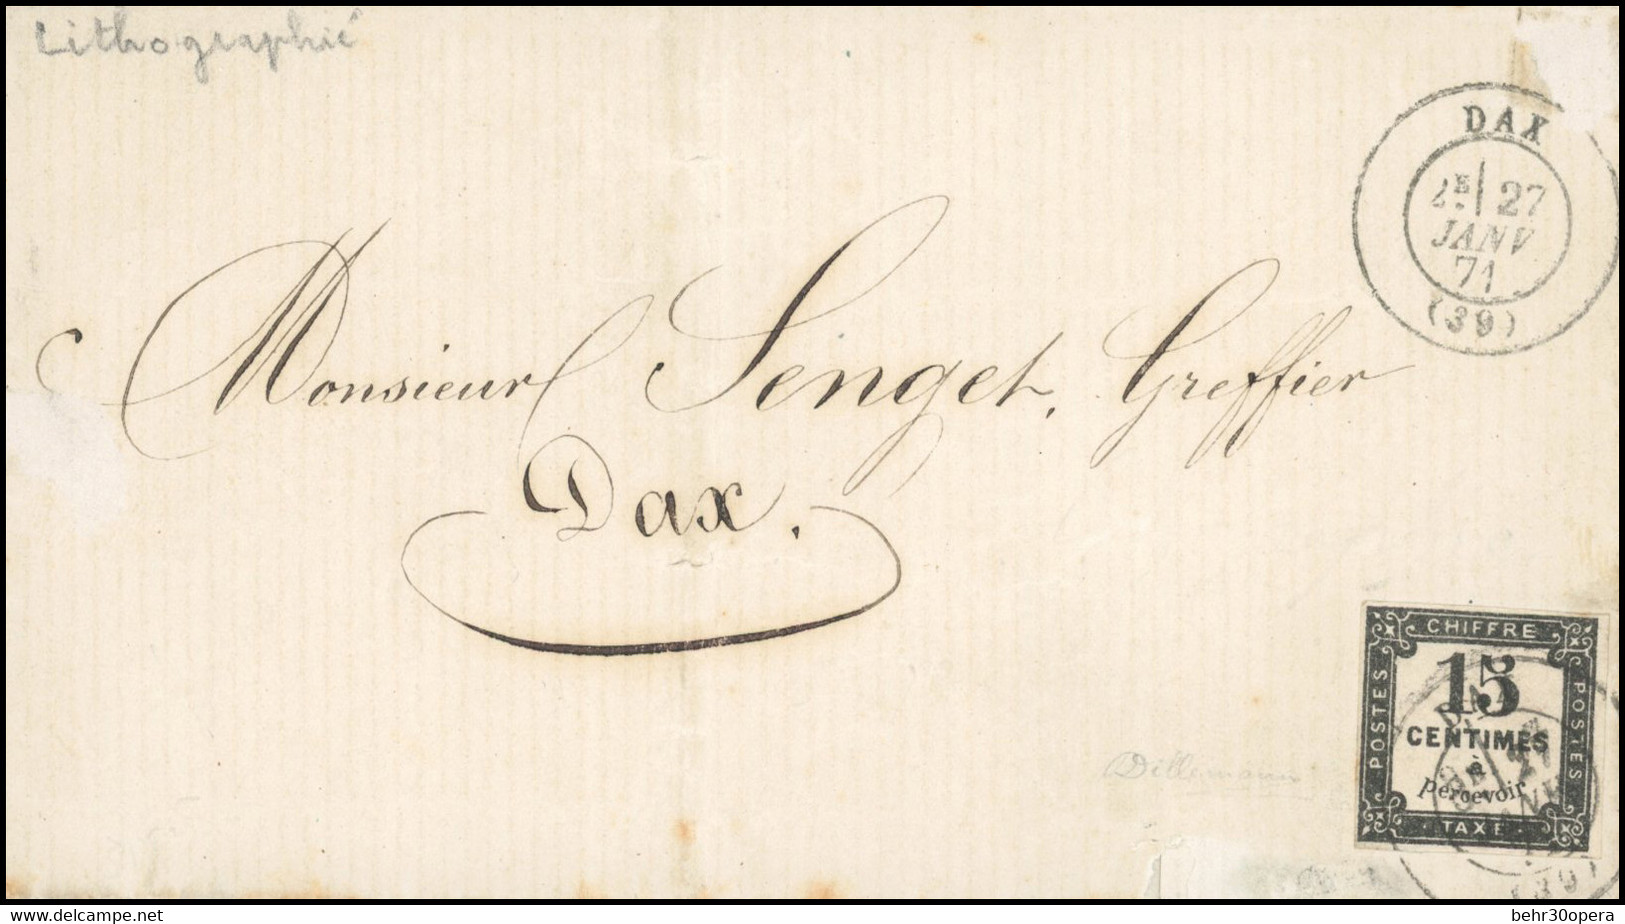 Lithographié
DAX
2E 27
JANV
71
(39)
Monsieur Senget, Greffier
Dax.
Dillemann
CHIFFRE
POSTES
15
CENTIMES
à
percevoir
POSTES
TAXE
27
(39)
www.delcampe.net
behr30opera